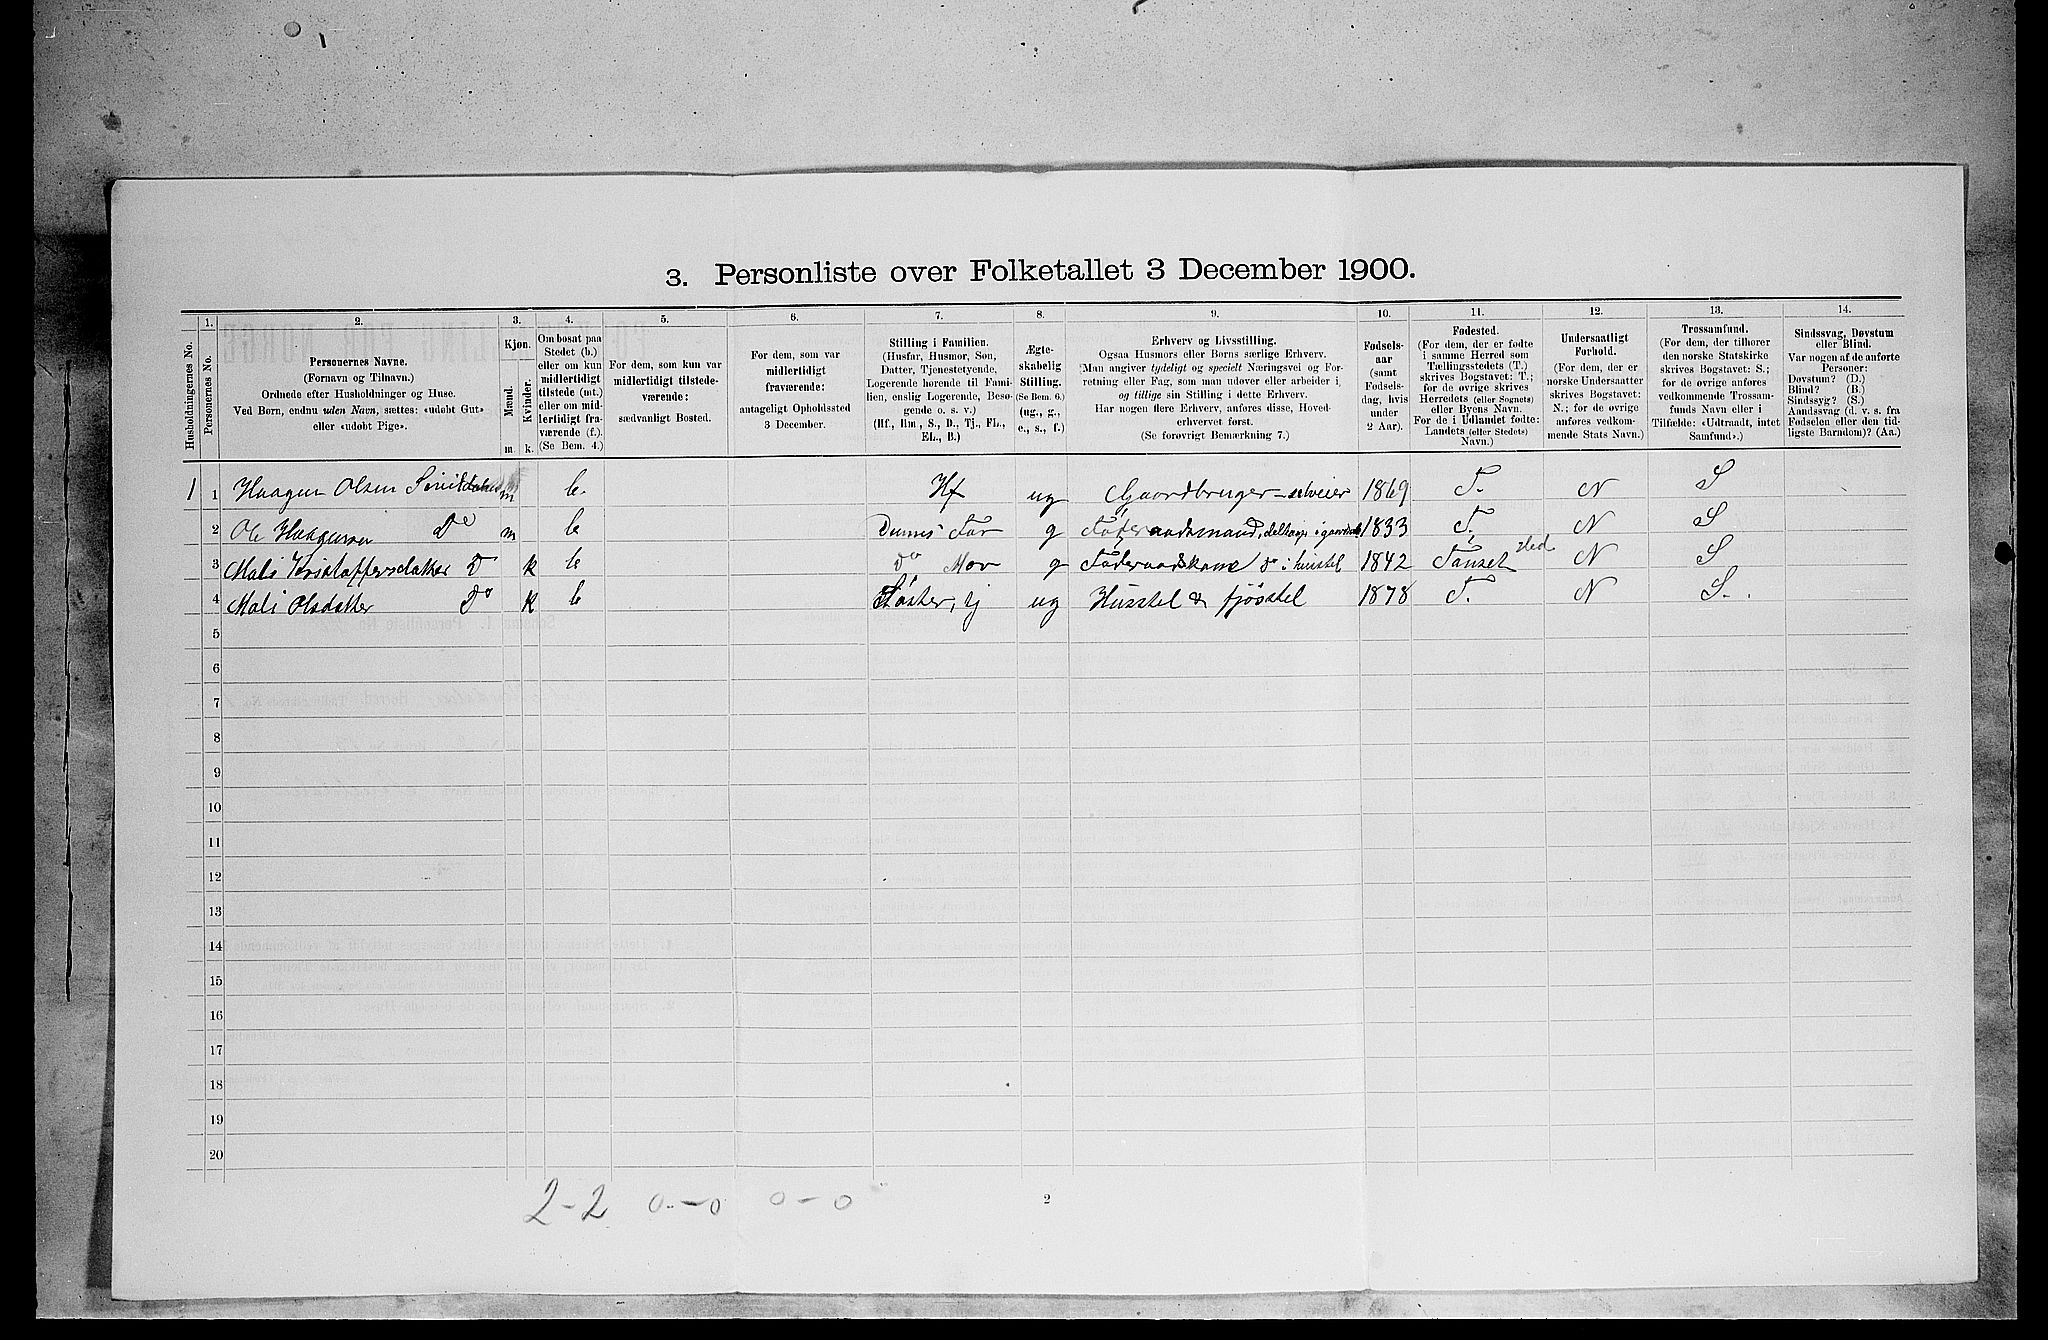 3. Personliste over Folketallet 3 December 1900.
Husholdningernes No.
1.
Personernes No.
2.
Personernes Navne.
(Fornavn og Tilnavn.)
Ordnede efter Husholdninger og Huse.
Ved Børn, endnu uden Navn, sættes: «udøbt Gut»
eller «udøbt Pige».
3.
Kjøn.
Mænd.
Kvinder.
m. k.
4.
Om bosat paa
Stedet (b.)
eller om kun
midlertidigt
tilstede (mt.)
eller om mid-
lertidigt fra-
værende (f.).
(Se Bem. 4.)
5.
For dem, som kun var
midlertidigt tilstede-
værende:
sædvanligt Bosted.
6.
For dem, som var
midlertidigt
fraværende:
antageligt Opholdssted
3 December.
7.
Stilling i Familien.
(Husfar, Husmor, Søn,
Datter, Tjenestetyende,
Logerende hørende til Fami-
lien, enslig Logerende, Besø-
gende o. s. v.)
(Hf., Hm., S., D., Tj., FL.,
EL., B.)
8.
Ægte-
skabelig
Stilling.
(Se Bem. 6.)
(ug., g.,
e., s., f.)
9.
Erhverv og Livsstilling.
Ogsaa Husmors eller Børns særlige Erhverv.
Man angiver tydeligt og specielt Næringsvei og For-
retning eller Fag, som man udøver eller arbeider i,
og tillige sin Stilling i dette Erhverv.
Har nogen flere Erhverv, anføres disse, Hoved-
erhvervet først.
(Se forøvrigt Bemærkning 7.)
10.
Fødsels-
aar
(samt
Fødsels-
dag, hvis
under
2 Aar).
11.
Fødested.
(For dem, der er fødte
i samme Herred som
Tællingsstedets (T.)
skrives Bogstavet: T.;
for de øvrige skrives
Herredets (eller Sognets)
eller Byens Navn.
For de i Udlandet fødte:
Landets (eller Stedets)
Navn.)
12.
Undersaatligt
Forhold.
(For dem, der er
norske Undersaatter
skrives Bogstavet:
N.; for de øvrige
anføres vedkom-
mende Stats Navn.)
13.
Trossamfund.
(For dem, der tilhører
den norske Statskirke
skrives Bogstavet: S.;
for de øvrige anføres
vedkommende Trossam-
funds Navn eller i
Tilfælde: «Udtraadt, intet
Samfund».)
14.
Sindssvag, Døvstum
eller Blind.
Var nogen af de anførte
Personer:
Døvstum? (D.)
Blind? (B.)
Sindssyg? (S.)
Aandssvag (d. v. s. fra
Fødselen eller den tid-
ligste Barndom)? (Aa.)
1 1 Haagen Olsen m b. Hf ug Gaardbruger - selveier 1869 T. N S
2 Ole Haagensen Do m b Dennes Far g Føderaadsmand, 1833 T. N S
3 Mali Kristoffersdatter D k b do Mor g Føderaadskone do i husstel 1842 Tønset N S
4 Mali Olsdatter Do k b Søster, tj ug Husstel & fjøsstel 1878 T. N S.
5
6
7
8
9
10
11
12
13
14
15
16
17
18
19
20
2-2 0-0 0-0
2